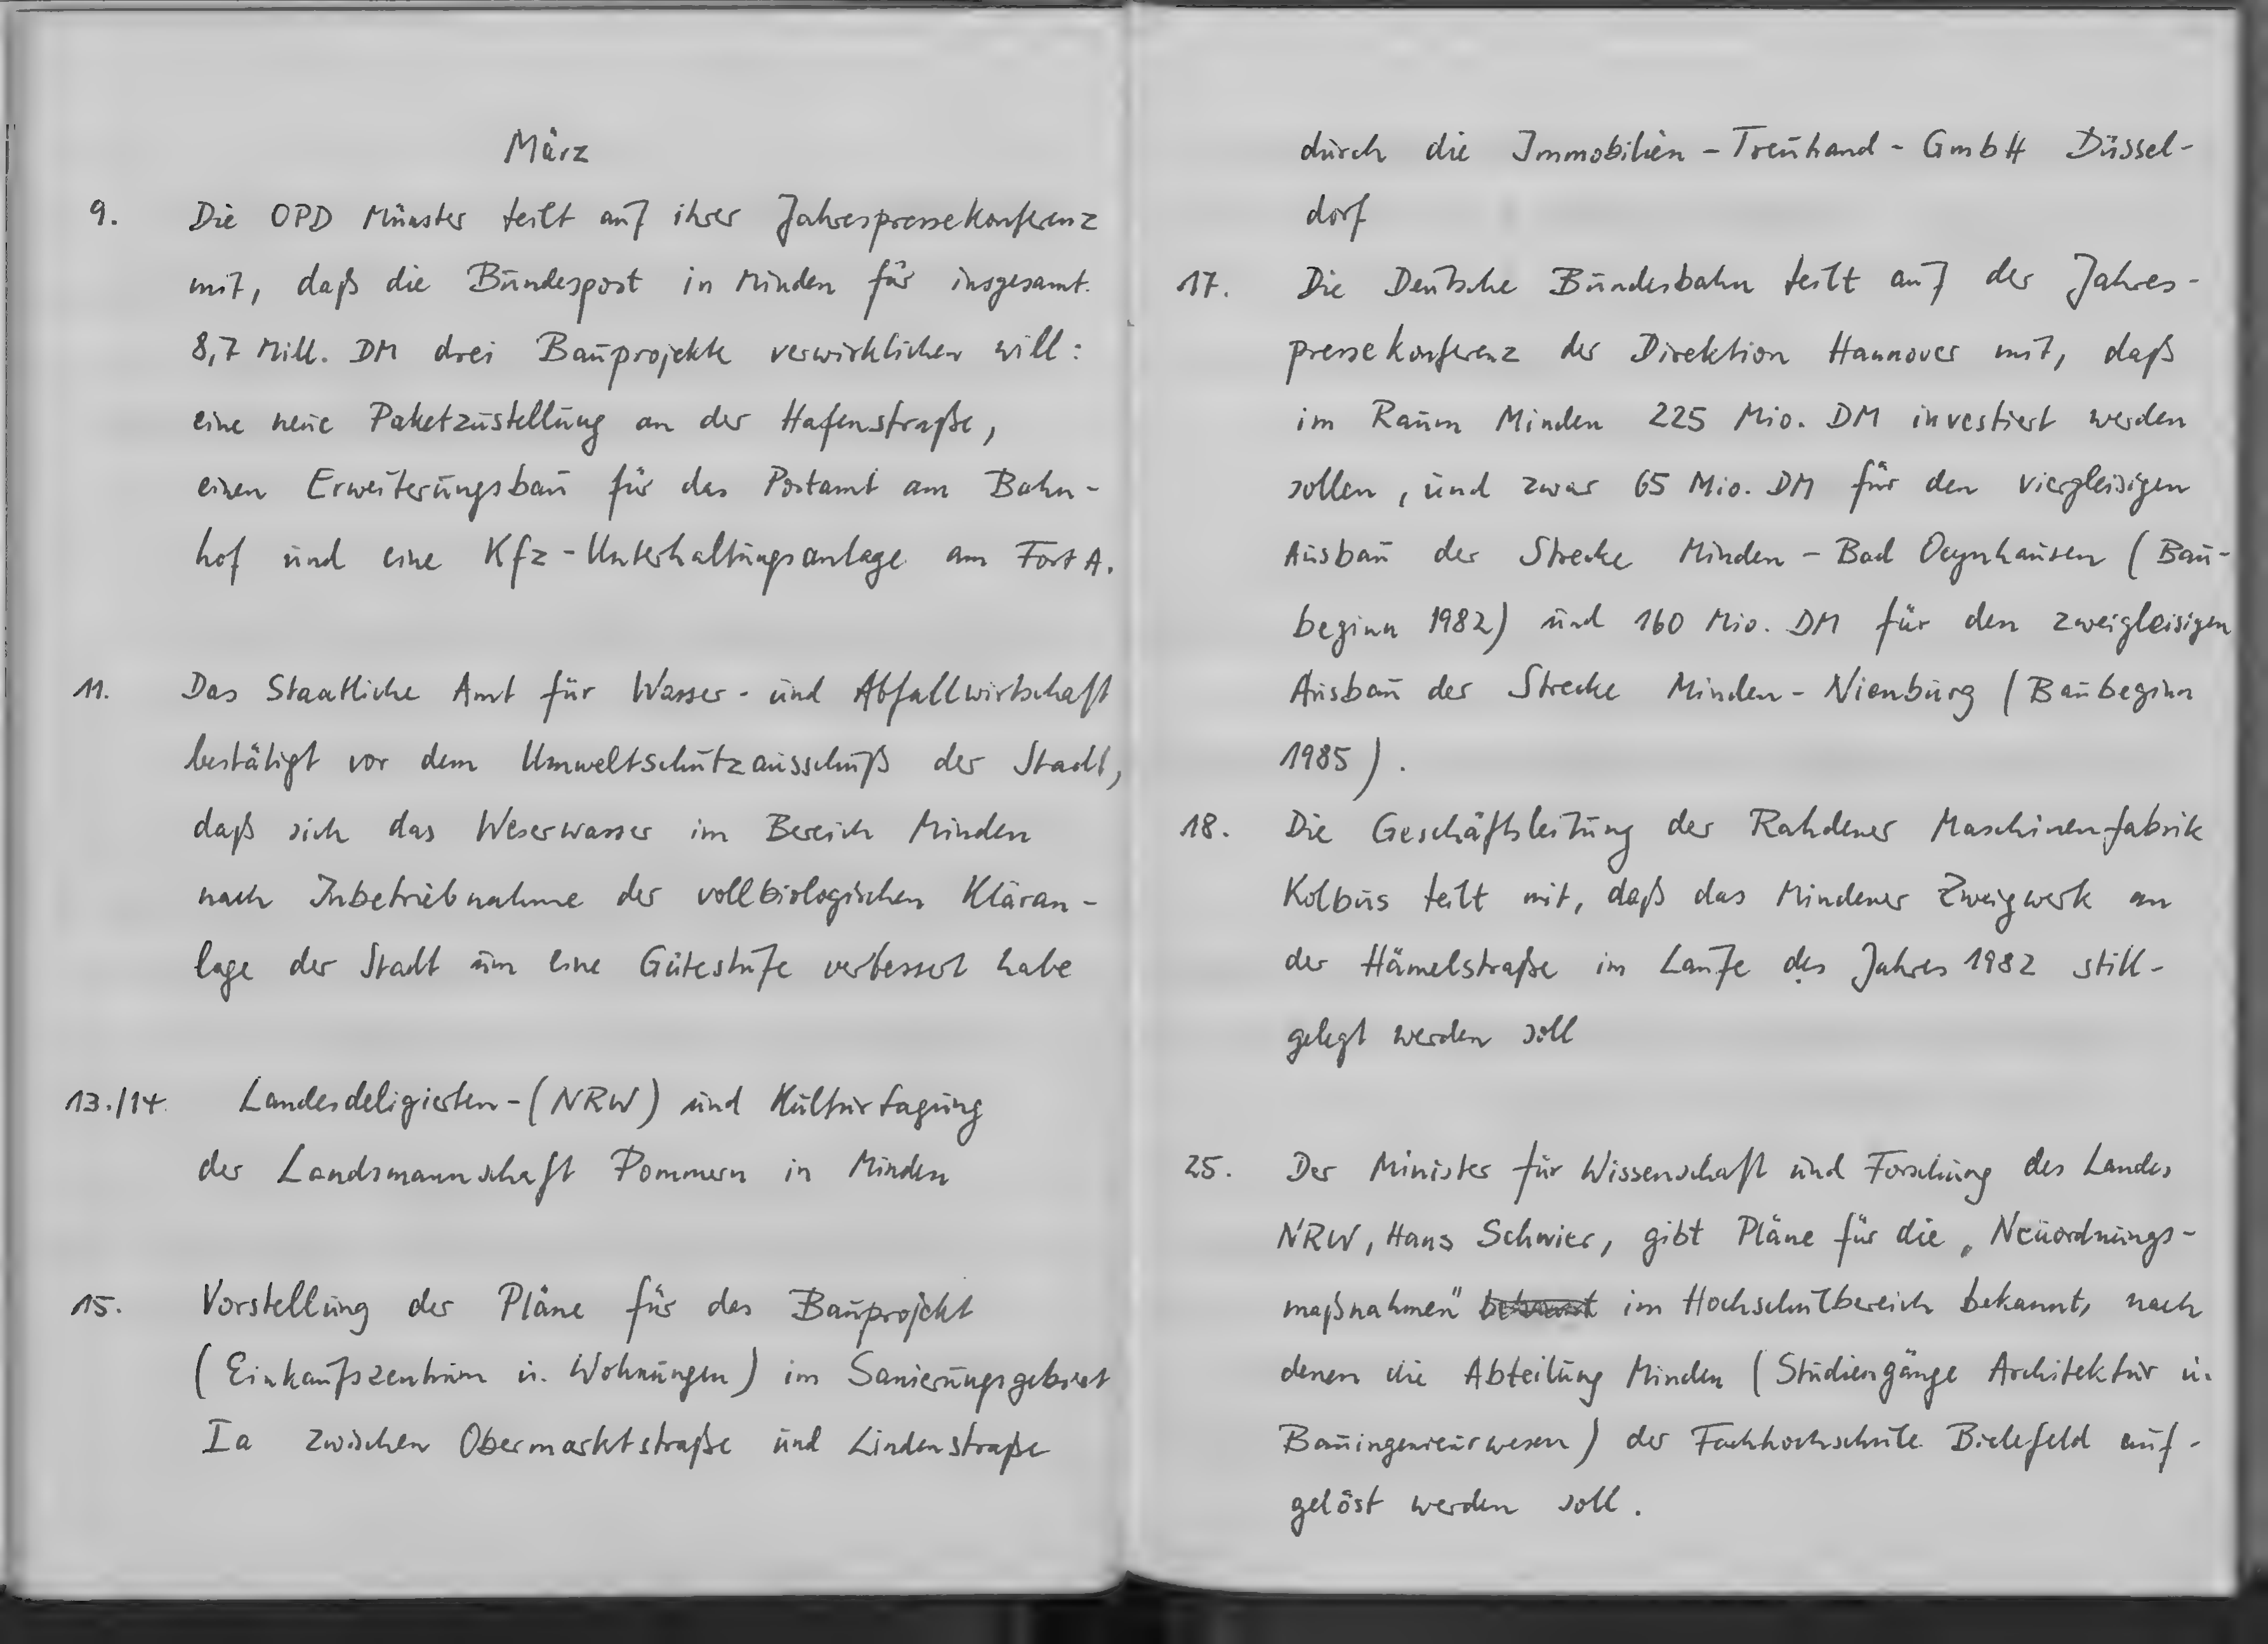 März
9. Die OPD Münster teilt auf ihrer Jahrespressekonferenz
mit, daß die Bundespost in Minden für insgesamt
8,7 Mill. DM drei Bauprojekte verwirklichen will:
eine neue Paketzustellung an der Hafenstraße,
einen Erweiterungsbau für das Postamt am Bahn-
hof und eine Kfz-Unterhaltungsanlage am Fort A.
11. Das Staatliche Amt für Wasser- und Abfallwirtschaft
bestätigt vor dem Umweltschutzausschuß der Stadt,
daß sich das Weserwasser im Bereich Minden
nach Inbetriebnahme der vollbiologischen Kläran-
lage der Stadt um eine Gütestufe verbessert habe
13./14. Landesdeligierten-(NRW) und Kulturtagung
der Landsmannschaft Pommern in Minden
15. Vorstellung der Pläne für das Bauprojekt
(Einkaufszentrum u. Wohnungen) im Sanierungsgebiet
Ia zwischen Obermarktstraße und Lindenstraße
durch die Immobilien-Treuhand-GmbH Düssel-
dorf
17. Die Deutsche Bundesbahn teilt auf der Jahres-
pressekonferenz der Direktion Hannover mit, daß
im Raum Minden 225 Mio. DM investiert werden
sollen, und zwar 65 Mio. DM für den viergleisigen
Ausbau der Strecke Minden - Bad Oeynhausen (Bau-
beginn 1982) und 160 Mio. DM für den zweigleisigen
Ausbau der Strecke Minden - Nienburg (Baubeginn
1985).
18. Die Geschäftsleitung der Rahdener Maschinenfabrik
Kolbus teilt mit, daß das Mindener Zweigwerk an
der Hämelstraße im Laufe des Jahres 1982 still-
gelegt werden soll
25. Der Minister für Wissenschaft und Forschung des Landes
NRW, Hans Schwier, gibt Pläne für die „Neuordnungs-
maßnahmen" bekannt im Hochschulbereich bekannt, nach
denen die Abteilung Minden (Studiengänge Architektur u.
Bauingenieurwesen) der Fachhochschule Bielefeld auf-
gelöst werden soll.